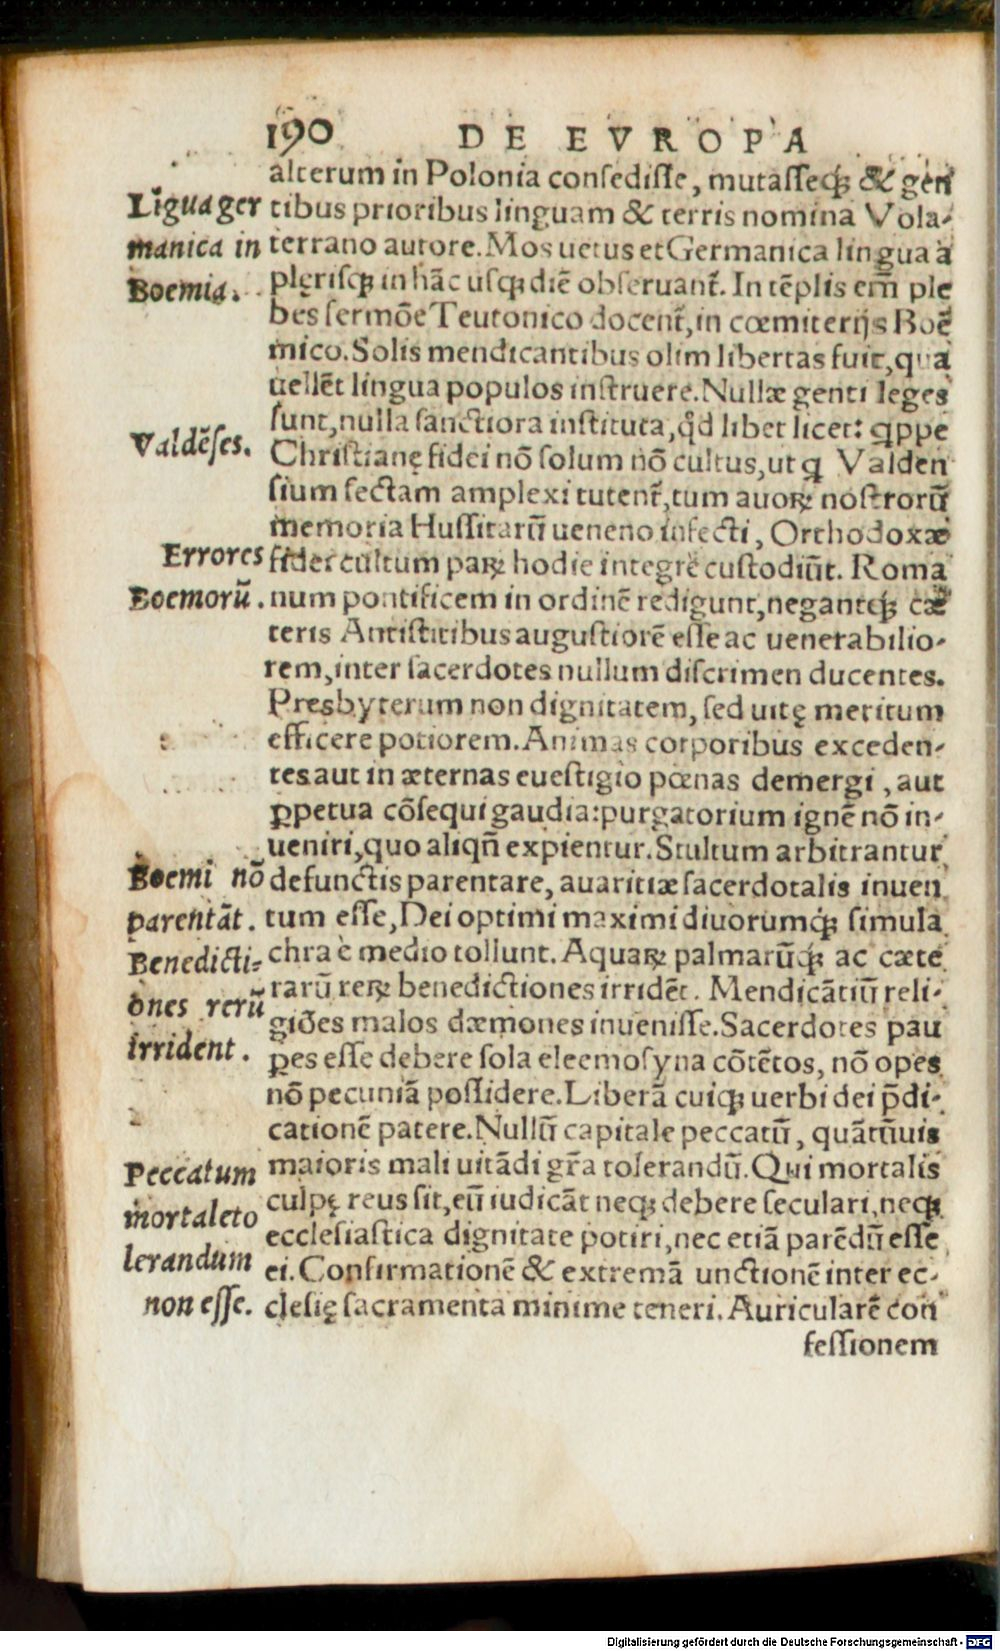 190 DE EVROPA
alterum in Polonia consedisse, mutasseq́; & gen
tibus prioribus linguam & terris nomina Vola-
terrano autore. Mos uetus et Germanica lingua a
plęrisq; in hāc usq; diē obseruant᷑. In tēplis em̄ ple
bes sermōe Teutonico docent᷑, in cœmiterijs Boē
mico. Solis mendicantibus olim libertas fuit, qua
uellēt lingua populos instruere. Nullæ genti leges
sunt, nulla sanctiora instituta, qd̛ libet licet: qppe
Christianę fidei nō solum nō cultus, ut q Valden
sium sectam amplexi tutent᷑, tum auoꝝ nostrorū
memoria Hussitarū ueneno infecti, Orthodoxæ
fidei cultum paꝝ hodie integrē custodiūt. Roma
num pontificem in ordinē redigunt, negantq́; cæ
teris Antistitibus augustiorē esse ac uenerabilio-
rem, inter sacerdotes nullum discrimen ducentes.
Presbyterum non dignitatem, sed uitę meritum
efficere potiorem. Animas corporibus exceden-
tes aut in æternas euestigio pœnas demergi, aut
ꝑpetua cōsequi gaudia: purgatorium ignē nō in-
ueniri, quo aliqn̄ expientur. Stultum arbitrantur
defunctis parentare, auaritiæ sacerdotalis inuen
tum esse, Dei optimi maximi diuorumq́; simula
chra è medio tollunt. Aquaꝝ palmarūq́; ac cæte
rarū reꝝ benedictiones irridēt. Mendicātiū reli-
giōes malos dæmones inuenisse. Sacerdotes pau
ꝑes esse debere sola eleemosyna cōtētos, nō opes
nō pecuniā possidere. Liberā cuiq; uerbi dei p̄di-
cationē patere. Nullū capitale peccatū, quātūuis
maioris mali uitādi gr̄a tolerandū. Qui mortalis
culpę reus sit, eū iudicāt neq; debere seculari, neq;
ecclesiastica dignitate potiri, nec etiā parēdū esse
ei. Confirmationē & extremā unctionē inter ec-
clesię sacramenta minime teneri. Auricularē con
fessionem
Liguager
manica in
Boemia.
Valdēses.
Errores
Boemorū.
Boemi nō
parentāt.
Benedicti-
ones rerū
irrident.
Peccatum
mortale to
lerandum
non esse.
Digitalisierung gefördert durch die Deutsche Forschungsgemeinschaft - DFG